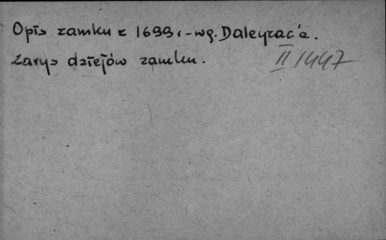 Opis zamku z 1699 r – wg. Daleyrac'a.
Zarys dziejów zamku. II/447